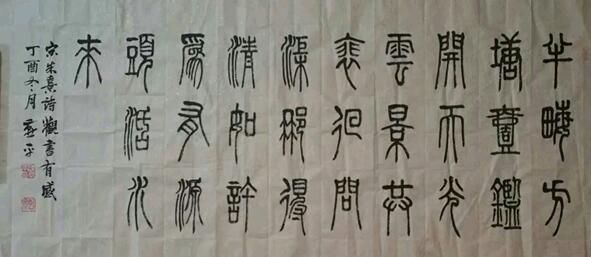 半畝方
塘壹鑑
開天光
雲景共
裵徊問
渠那得
清如許
爲有源
頭活水
来
宋朱熹詩觀書有感
丁酉冬月